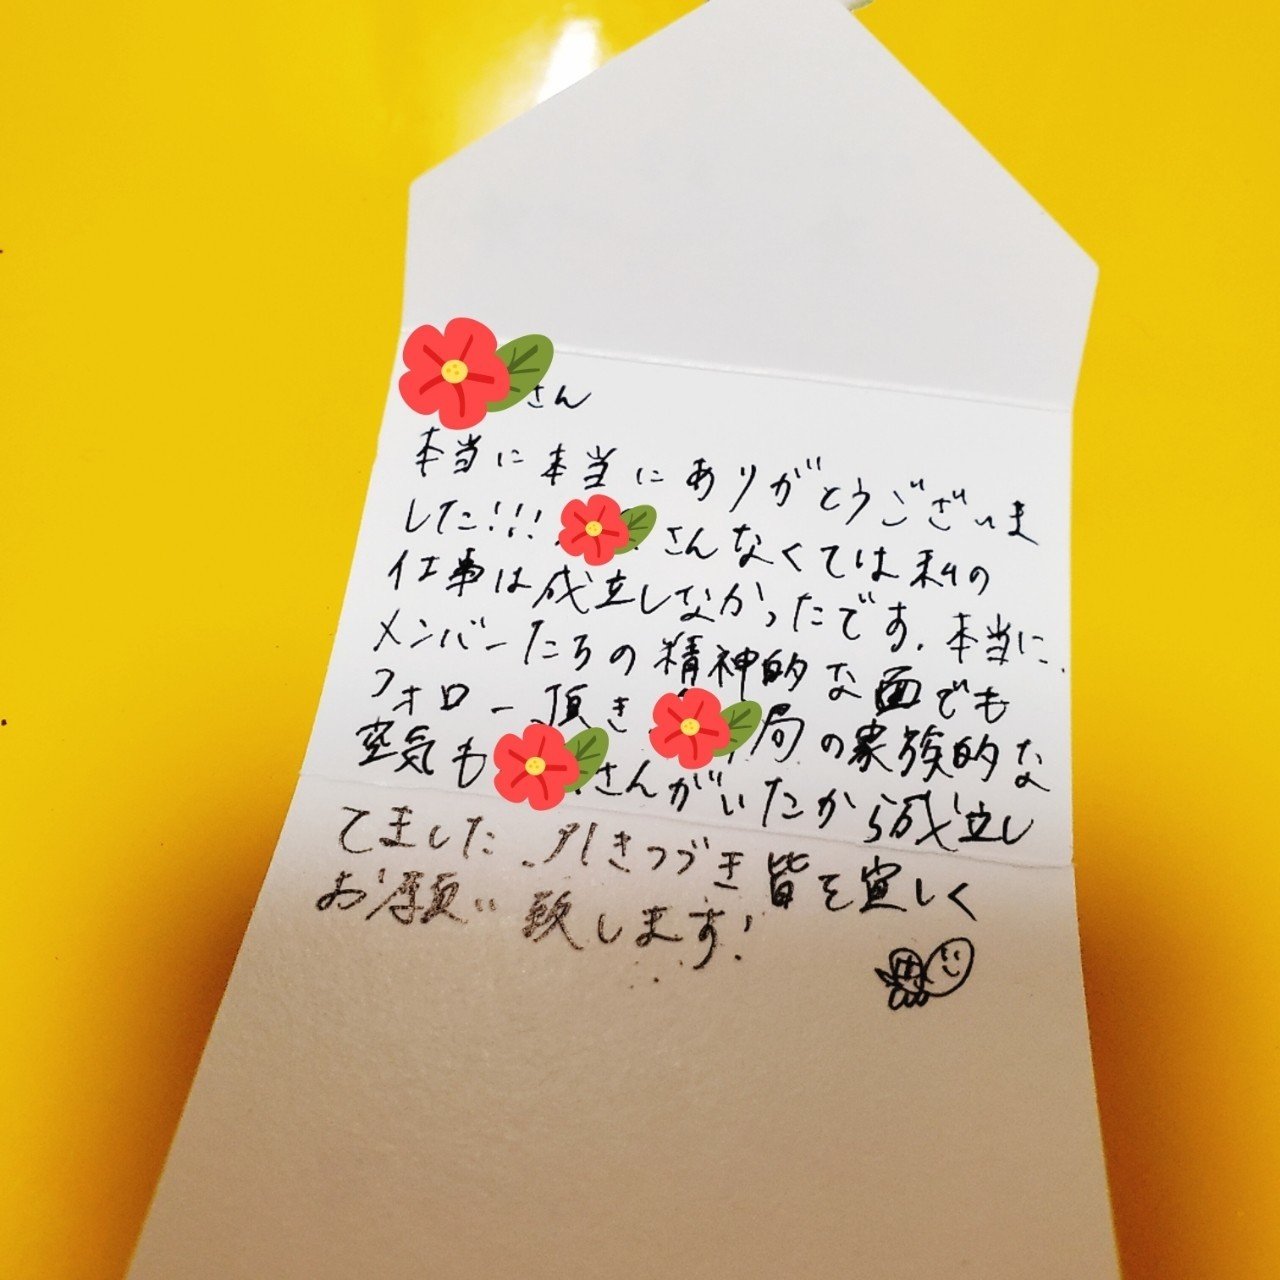 さん
本当に本当にありがとうございま
した!!! さんなくては私の
仕事は成立しなかったです. 本当に.
メンバーたちの精神的な面でも
フォロー頂き 局の家族的な
空気も さんがいたから成立し
てました. 引きつづき皆を宜しく
お願い致します!